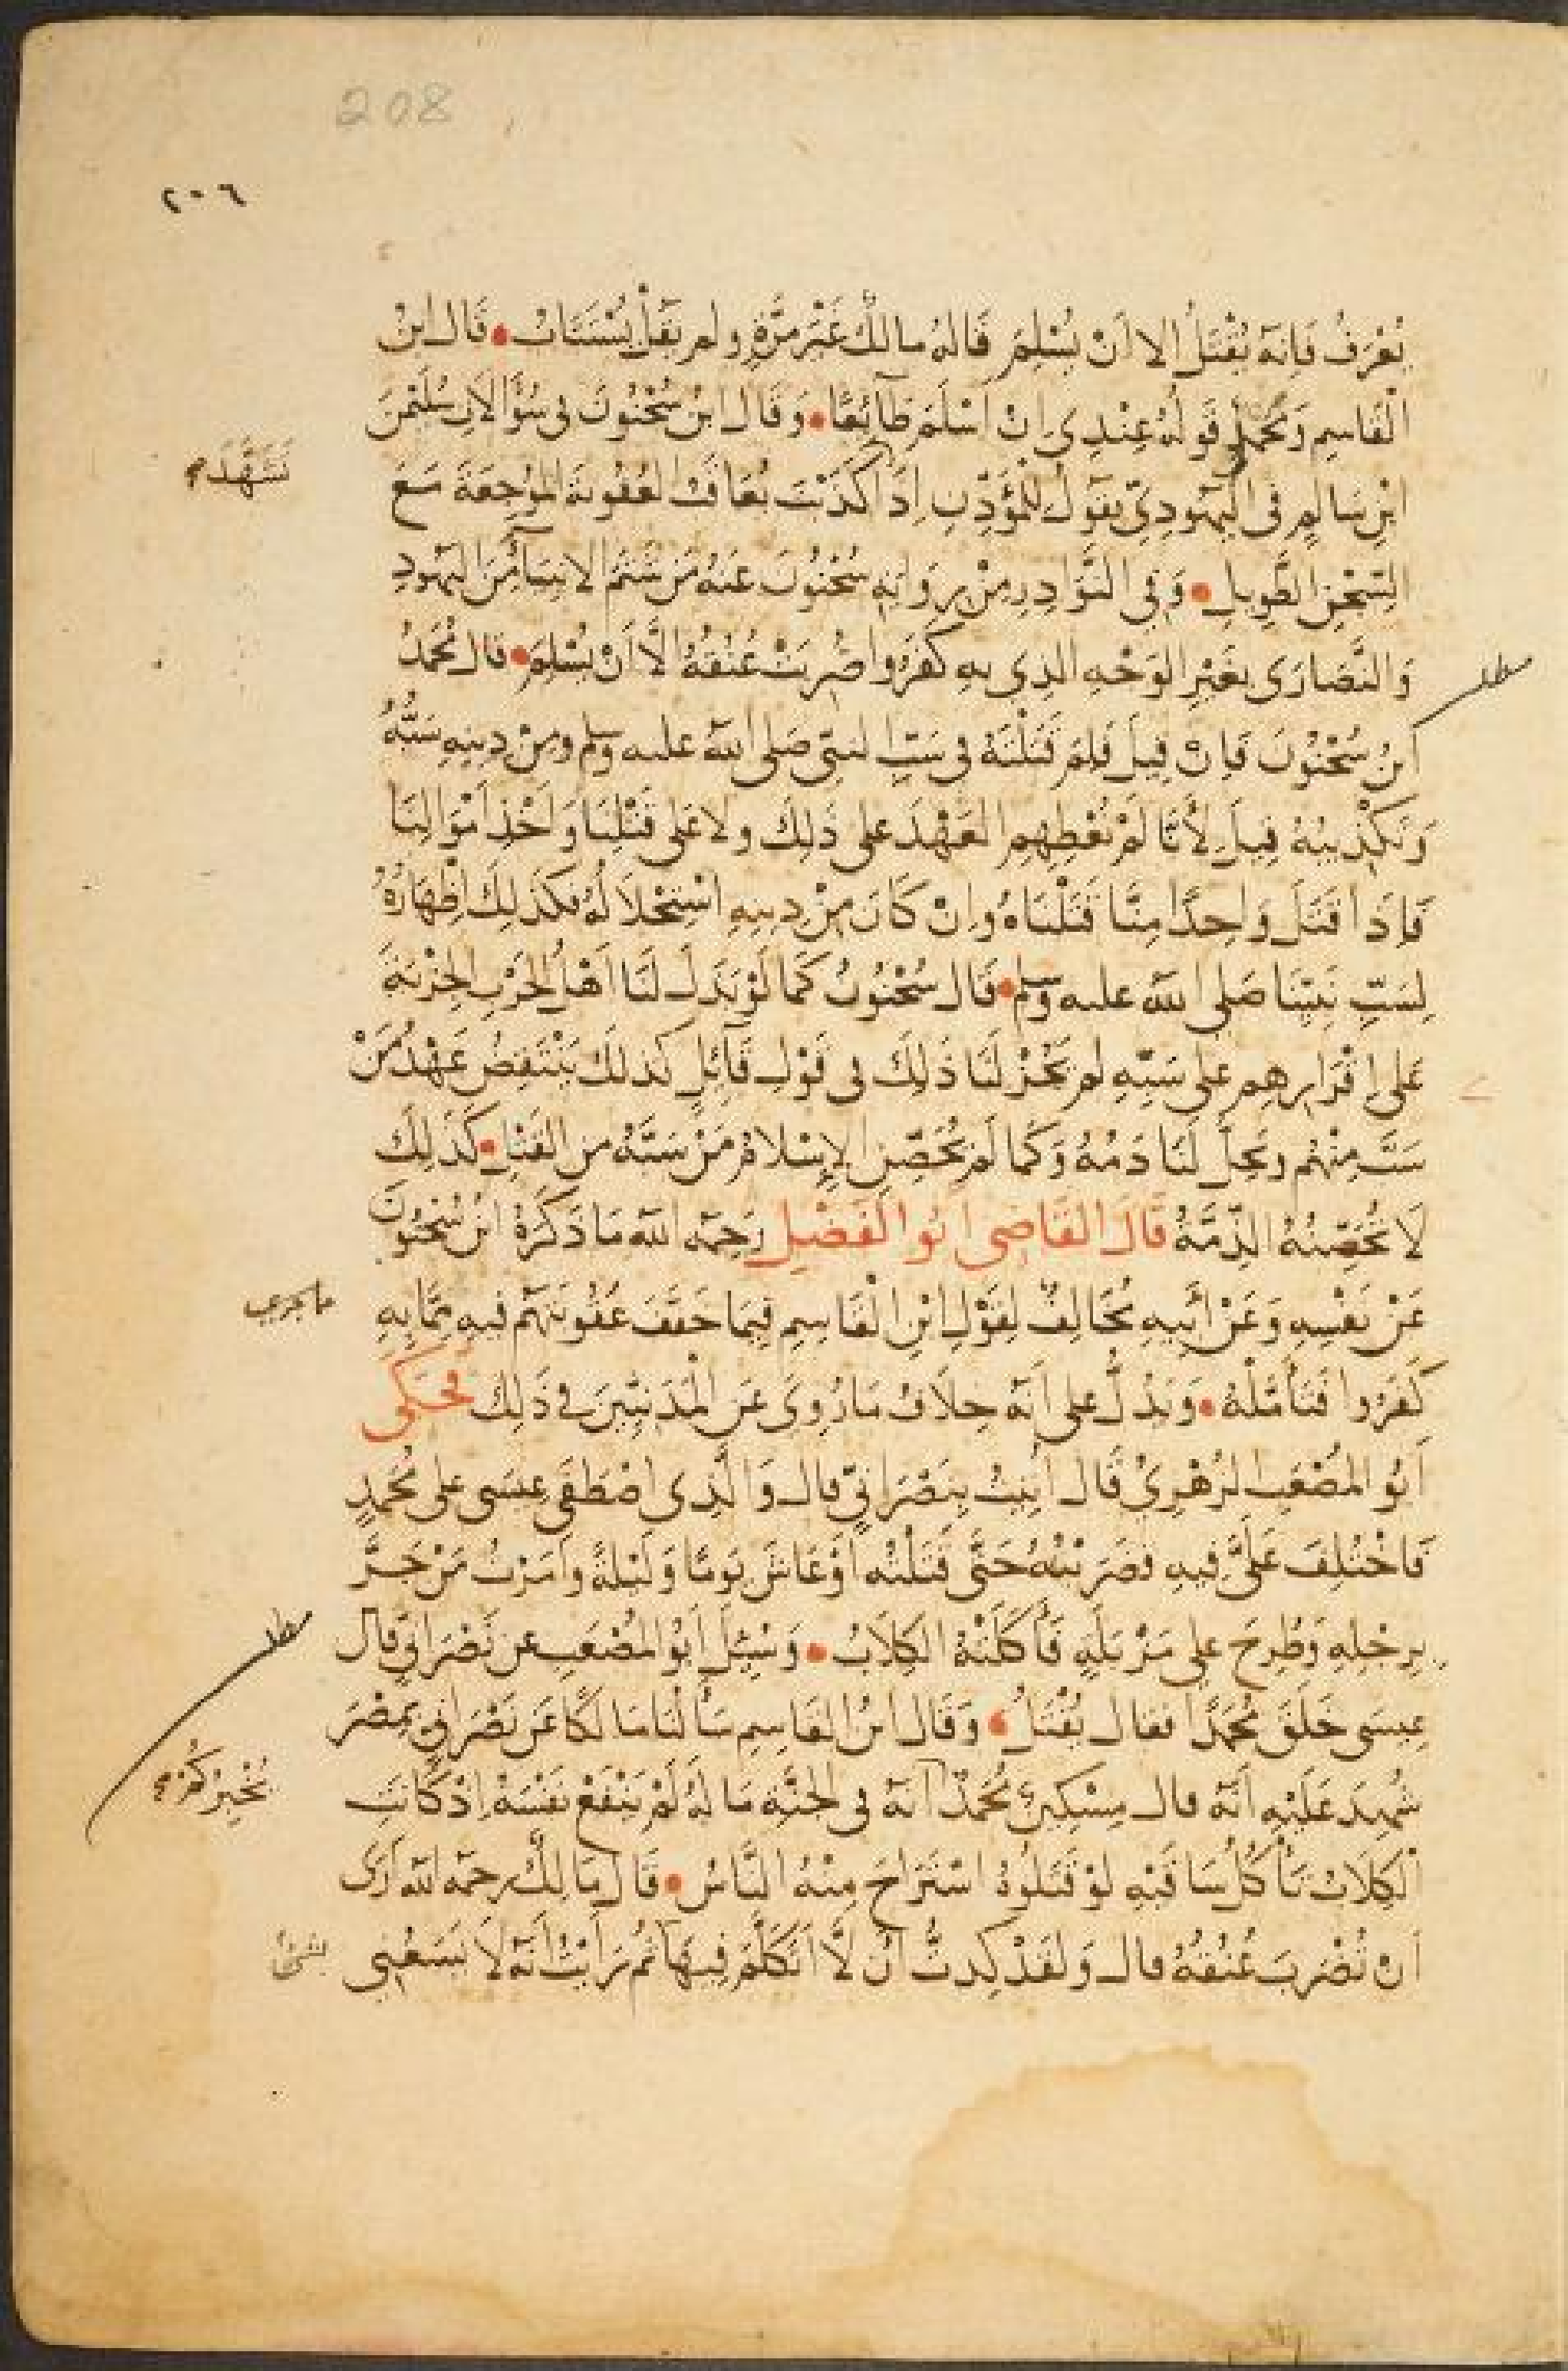 208
٢٠٦
يُعْرَفُ فَإِنَّهُ يُقْتَلُ إلا أَنْ يُسْلِمَ قَالَهُ مالكٌ غَيْرَ مَرَّةٍ ولم يَقُلْ يُسْتَتَابُ • قَال ابنُ
الْقَاسِمِ وَمَحْمَلُ قَولِهُ عِنْدِى إنْ أَسْلَمَ طَآئِعًا • وَقَال ابنُ سُحْنُونَ فى سُؤَالاتِ سُلَيْمٰنَ
ابْنِ سَالِمٍ فى اليَهُودِىِّ يَقُولُ لِلْمُؤَذِّنِ إِذَا كَذَبْتَ يُعَاقَبُ العُقُوبَةَ المُوجِعَةَ مَعَ
تَشَهَّدَ
السِّجْنِ الطَّوِيلِ • وَفِى النَّوَادِرِ مِنْ رِوَايَةِ سُحْنُونَ عَنهُ مَنْ شَتَمَ الانبيَآءَ مِنَ اليَهُودِ
وَالنَّصَارَى بِغَيْرِ الوَجْهِ الذِى بِهِ كَفَرُوا ضُرِبَتْ عُنُقُهُ إِلَّا أَنْ يُسْلِمَ • قال مُحَمَّدُ
ابْنُ سُحْنُونَ فَإنْ قِيلَ فَلِمَ قَتَلْتَهُ فى سَبِّ النبِىِّ صَلى الله عليه وسلم ومِنْ دِينِهِ سَبُّهُ
وَتَكْذِيبُهُ قِيلَ لأَنَّا لَمْ نُعْطِهِمِ العَهْدَ على ذَلِكَ ولا عَلى قَتْلِنَا وَأَخْذِ أَمْوَالِنَا
فَإِذَا قَتَلَ وَاحِدًا مِنَّا قَتَلْنَاهُ وإنْ كَانَ مِنْ دِينِهِ اسْتِحْلَالُهُ فكَذلِكَ إظْهَارُهُ
لِسَبِّ نَبِيِّنَا صَلى الله عليه وسلم • قَال سُحْنُونُ كَمَا لَوْ بَذَلَ لَنَا أَهْلُ الحَرْبِ الجِزْيَةَ
عَلى إقْرَارِهِم على سَبِّهِ لم يَجُزْ لَنَا ذَلِكَ فى قَوْلِ قَآئِلٍ كَذلكَ يَنْتَقِضُ عَهْدُ مَنْ
سَبَّ مِنْهُم ويَحِلُّ لَنَا دَمُهُ وَكَمَا لَمْ يُحَصِّنِ الإسْلَامُ مَنْ سَبَّهُ من القَتْلِ • كَذلِكَ
لَا تُحَصِّنُهُ الذِّمَّةُ قَالَ القَاضِى أبُو الفَضْلِ رَحِمَه الله مَا ذَكَرَهُ ابْنُ سُحْنُونَ
عَنْ نَفْسِهِ وَعَنْ أَبِيهِ مُخَالِفٌ لِقَوْلِ ابْنِ الْقَاسِمِ فِيمَا خَفَّفَ عُقُوبَتَهُم فيهِ مِمَّا بِهِ
كَفَرُوا فَتَأَمَّلْهُ • وَيَدُلُّ على أَنَّهُ خِلَافُ مَا رُوِىَ عَنِ الْمَدَنِيِّينَ فى ذَلِكَ فَحَكَى
أَبُو المُصْعَبِ الزُهْرِىُّ قَال أُتِيتُ بِنَصْرَانِىٍّ قال وَالَّذِى اصْطَفَى عِيسَى على مُحَمَّدٍ
فَاخْتُلِفَ عَلَىَّ فِيهِ فَضَرَبْتُهُ حَتَّى قَتَلْتُه أَوْ عَاشَ يَومًا وَلَيْلَةً وأَمَرْتُ مَنْ جَرَّ
بِرِجْلِهِ وَطُرِحَ على مَزْبَلَةٍ فَأَكَلَتْهُ الكِلَابُ • وَسُئِلَ أَبُو المُصْعَبِ عن نَصْرَانِىٍّ قال
عِيسَى خَلَقَ مُحَمَّدًا فقال يُقْتَلُ • وَقَال ابنُ القَاسِمِ سَأَلْنَا مَالكًا عَن نَصْرَانِىٍّ بِمِصْرَ
شُهِدَ عَلَيْهِ أَنَّهُ قال مِسْكِينٌ مُحَمَّدٌ أَنَّهُ فى الجَنَّةِ مَا لَهُ لَمْ يَنْفَعْ نَفْسَهُ إذْ كَانَتِ
يُخْبِرُكُمْ
الْكِلَابُ تَأْكُلُ سَاقَيْهِ لوْ قَتَلُوهُ اسْتَرَاحَ مِنْهُ النَّاسُ • قَالَ مَالِكٌ رحمه الله أَرَى
أَنْ تُضْرَبَ عُنُقُهُ قال وَلَقَدْ كِدتُّ أَن لَّا أَتَكَلَّمَ فِيهَا ثُم رَأَيْتُ أَنَّهُ لَا يَسَعُنِى